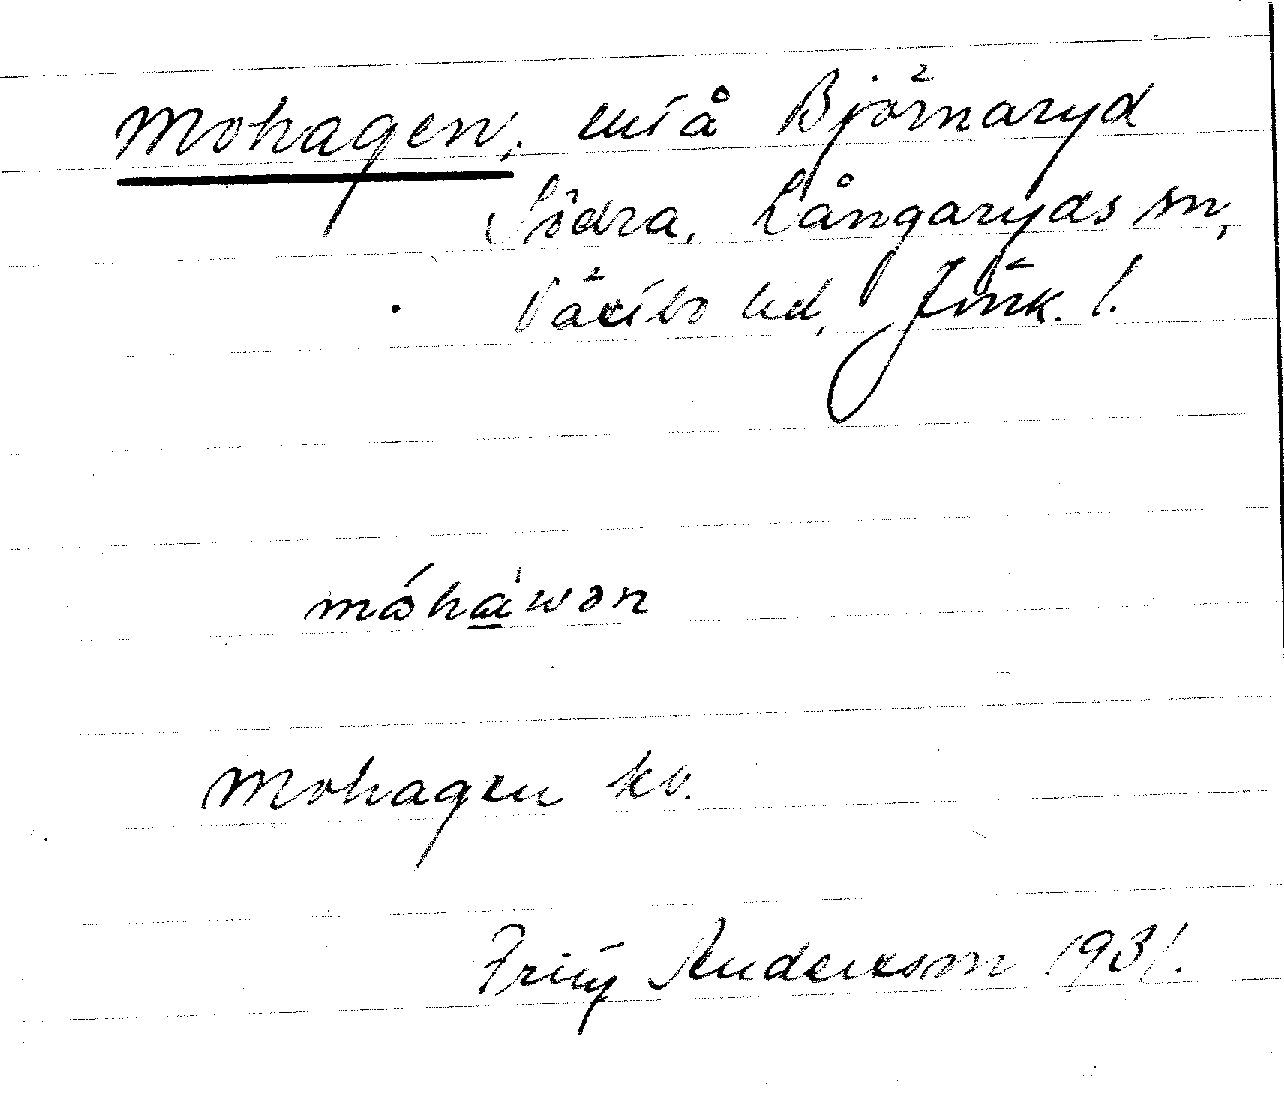 Mohagen, miå Björnaryd
Södra, Långaryds sn,
Västbo hd, Jönk. l.
móhàwən
Mohagen kv.
Fritz Andersson 1931.